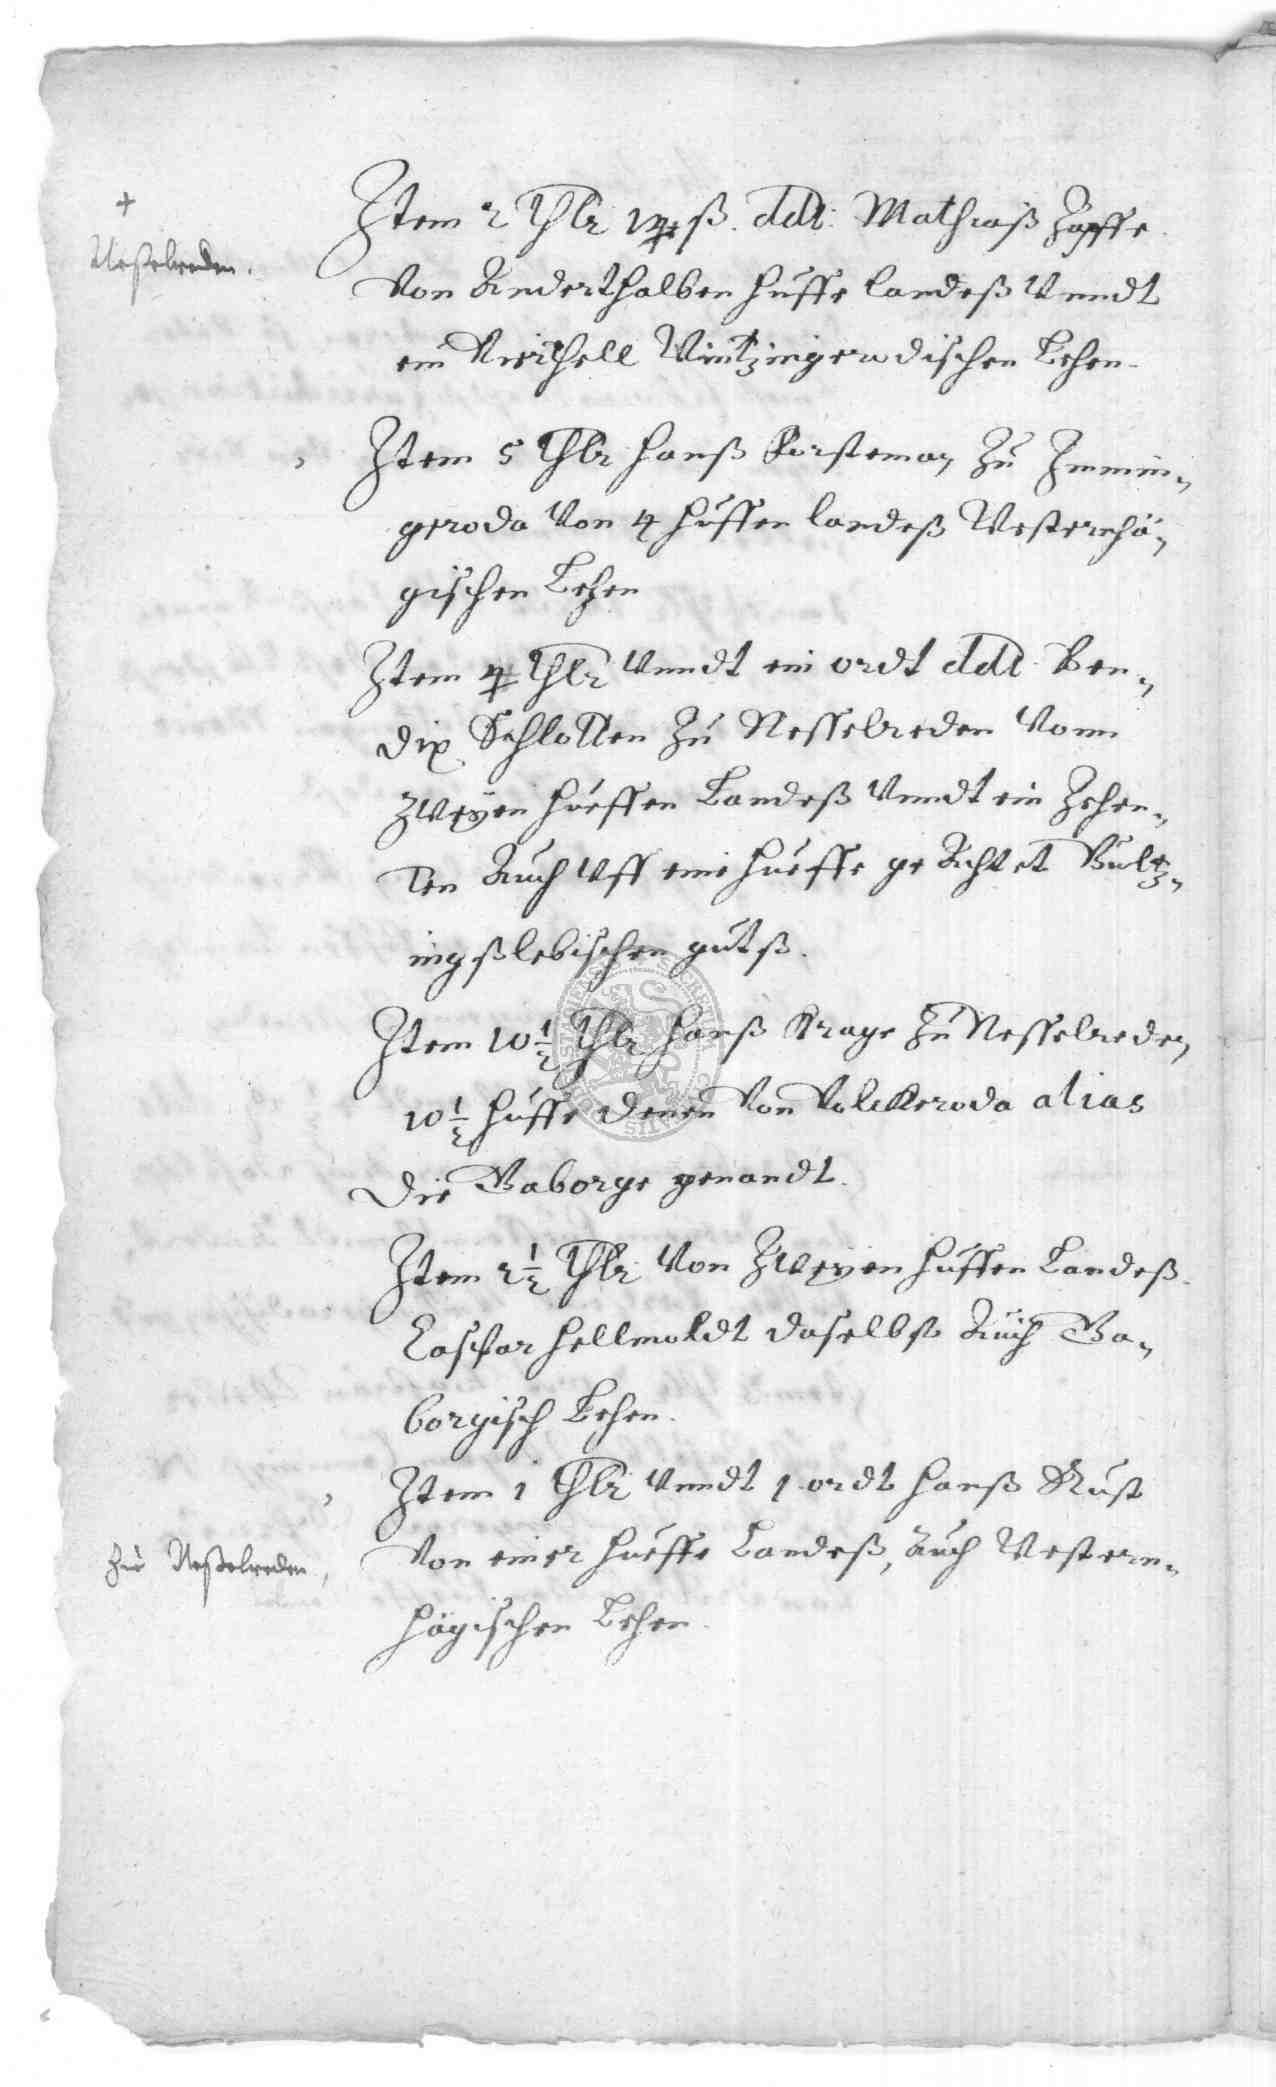 +
Neßelreden.
Item 2 thlr 14 ß. ddt. Mathiaß Zapffe
Von Anderthalben huffe landeß Vnndt
ein Vierthell Wintzingerodischen Lehen.
Item 5 Thlr Hanß Forsteman Zu Immin„
geroda Von 4 Huffen landeß Westernhä„
gischen Lehen
Item 4 Thlr Vnndt ein ordt ddt Ben„
dix Schlotten Zu Nesselreden Vonn
Zweyen Hueffen Landeß Vnndt ein Zehen„
den Auch Vff eine Hueffe geAchtet Bultz„
ingßlebischen gutß.
Item 10 1/2 Thlr Hanß Krage Zu Nesselreden
10 1/2 Huffe denen Von Volckeroda alias
die Vaborge genandt.
Item 2 1/2 Thlr Von Zweyen Huffen Landeß.
Caspar Hellmoldt daselbst Auch Va„
borgisch Lehen.
Item 1 Thlr Vnndt 1 ordt Hanß Rust
Zue Neßelreden,
Von einer Hueffe Landeß, Auch Western„
hägischen Lehen.